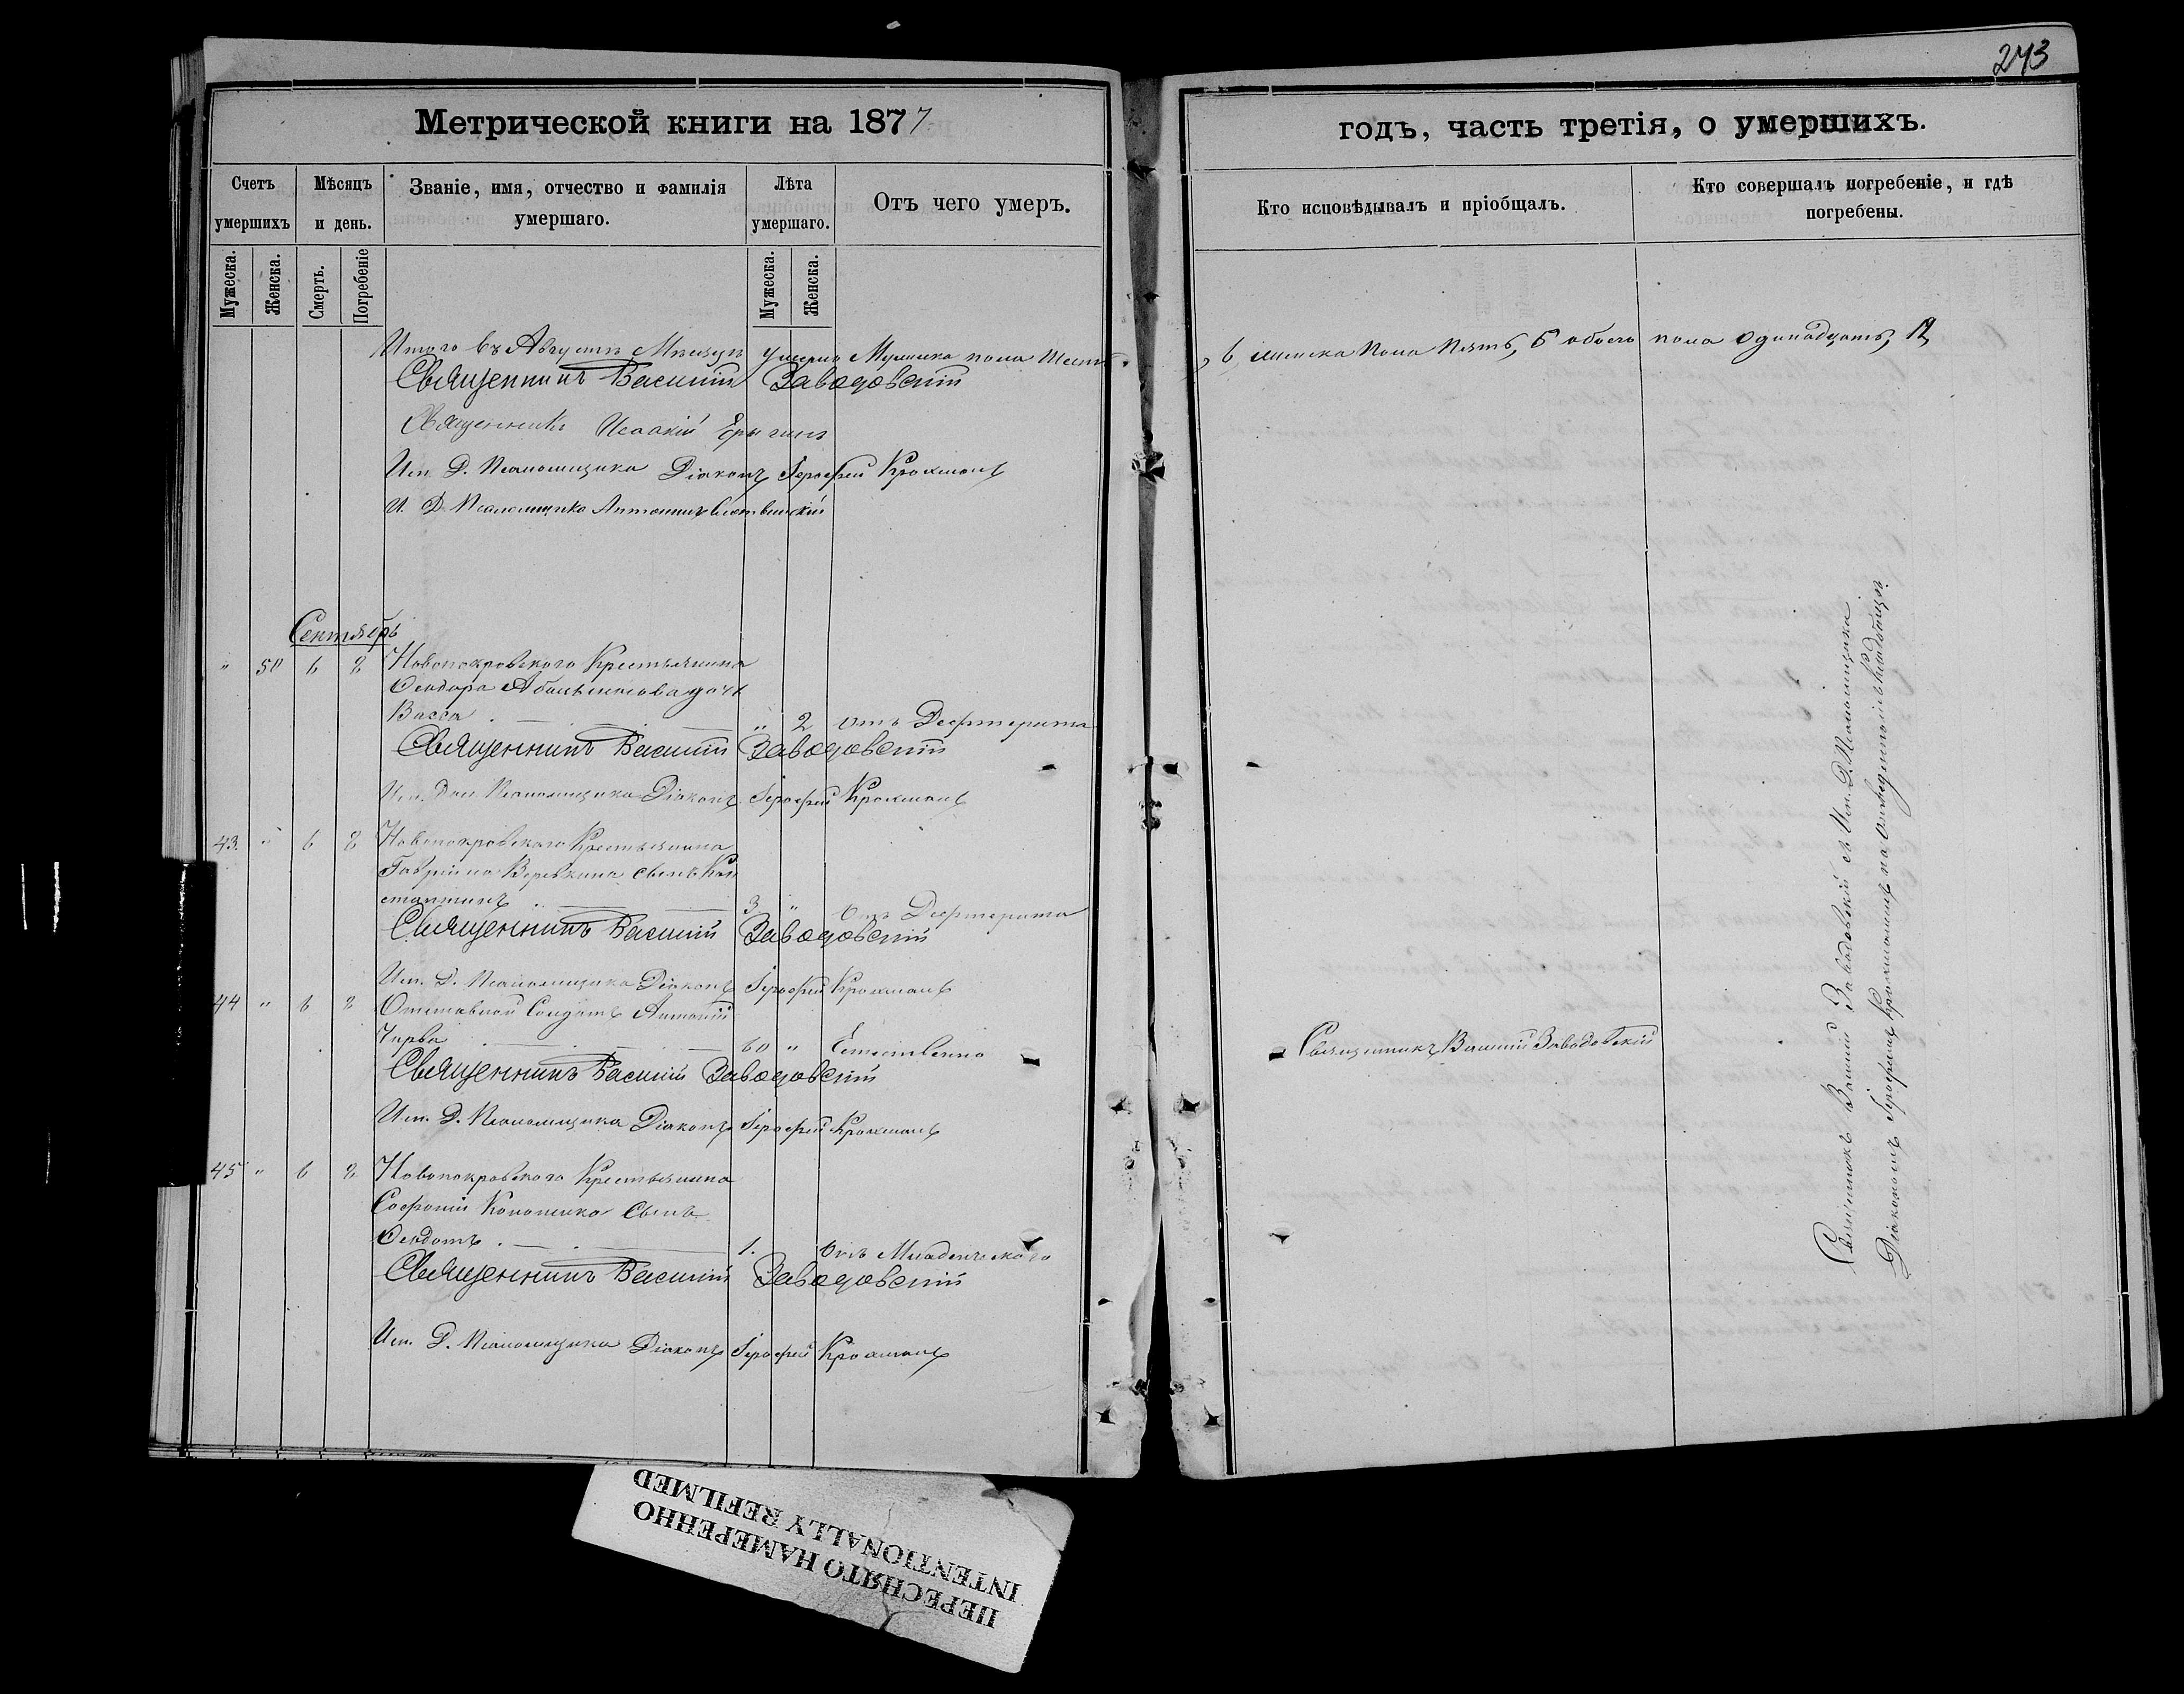 243
Метрической книги на 1877
годъ, часть третія, о умершихъ.
Счетъ умершихъ
Мѣсяцъ и день.
Званіе, имя, отчество и фамилія умершаго.
Лѣта умершаго.
Отъ чего умеръ.
Кто исповѣдывалъ и пріобщалъ.
Кто совершалъ погребеніе, и гдѣ погребены.
Мужеска.
Женска.
Смерть.
Погребеніе
Мужеска.
Женска.
Итого въ Августѣ Мѣсяцѣ умерло Мужеска пола шесть, 6, женска пола пять, 5 обоего пола одинадцать, 11,
Священникъ Василій Заводовскій
Священникъ Исаакій
Исп. Д. Псаломщика Діаконъ Іерофей Крохмаль
И. Д. Псаломщика
Сентябрь
" 50 6 8 Новопокровского Крестьянина
Феодора дочь
Васса " 2 отъ Дефтерита
Священникъ Василій Заводовскій
Исп. Дол. Псаломщика Діаконъ Іерофей Крохмаль
43. " 6 8 Новопокровского Крестьянина
Гавріила Веревкина сынъ Кон
стантинъ 3 " отъ Дефтерита
Священникъ Василій Заводовскій
Исп. Д. Псаломщика Діаконъ Іерофей Крохмаль
44 " 6 8 Отставной Солдатъ Антоній
Чирва 60 " Естественно
Священникъ Василій Заводовскій
Священникъ Василій Заводовскій
Исп. Д. Псаломщика Діаконъ Іерофей Крохмаль
45 " 6 8 Новопокровского Крестьянина
Софронія Кононенка сынъ
Феодотъ 1. отъ Младенческаго
Священникъ Василій Заводовскій
Исп. Д. Псаломщика Діаконъ Іерофей Крохмаль
Священникъ Василій Заводовскій съ Исп. Д. Псаломщика
Діакономъ Іерофеемъ Крохмалемъ на отведенномъ кладбищѣ.
ПЕРЕСНЯТО НАМЕРЕННО
INTENTIONALLY REFILMED